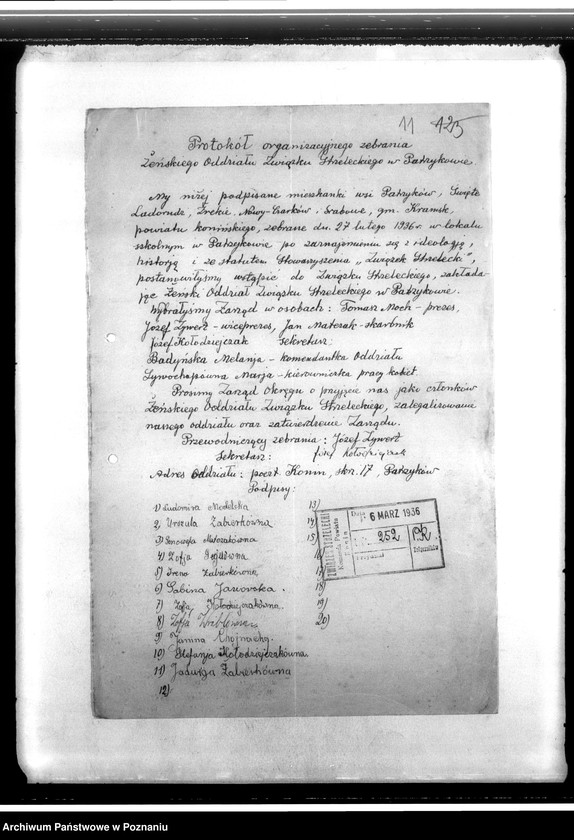 11 125
Protokół organizacyjnego zebrania
Żeńskiego Oddziału Związku Strzeleckiego w Patrzykowie.
My niżej podpisane mieszkanki wsi Patrzyków, Święte
Ladorudz, Żrekie, Nowy-Czarków i Grabowe, gm. Kramsk,
powiatu konińskiego, zebrane dn. 27 lutego 1936 r. w lokalu
szkolnym w Patrzykowie po zaznajomieniu się z ideologją,
historją i ze statutem Stowarzyszenia "Związek Strzelecki",
postanowiłyśmy wstąpić do Związku Strzeleckiego, zakłada-
jąc Żeński Oddział Związku Strzeleckiego w Patrzykowie.
Wybrałyśmy Zarząd w osobach: Tomasz Moch - prezes,
Józef Zywert - wiceprezes, Jan Matczak - skarbnik
Józef Kołodziejczak Sekretarz:
Badyńska Melanja - komendantka Oddziału
Marja - kierowniczka pracy kobiet.
Prosimy Zarząd Okręgu o przyjęcie nas jako członków
Żeńskiego Oddziału Związku Strzeleckiego, zalegalizowanie
naszego oddziału oraz zatwierdzenie Zarządu.
Przewodniczący zebrania: Józef Zywert
Sekretarz: Józef Kołodziejczak
Adres Oddziału: poczt. Konin, skr. 17, Patrzyków
Podpisy:
1) Ludomira Modelska
2) Urszula Żabierkówna
3) Matczakówna
4) Zofja
5) Irena Żabierkówna
6) Sabina Jaworska.
7) Zofja Kołodziejczakówna
8) Zofja
9) Janina
10) Stefanja Kołodziejczakówna
11) Jadwiga Żabierkówna
12)
13)
14)
15)
16)
17)
18)
19)
20)
ZWIĄZEK STRZELECKI
Komenda Powiatu
Konin
Data 6 MARZ 1936
L. dz. 252
Przydział
Załączników
Archiwum Państwowe w Poznaniu